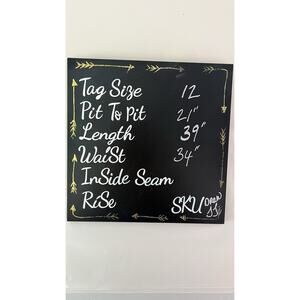 Tag Size 12
Pit To Pit 21"
Length 39"
WaiSt 34"
InSide Seam
RiSe SKU